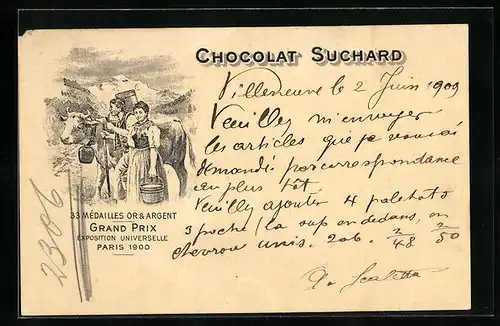 CHOCOLAT SUCHARD
Villeneuve le 2 Juin 1909
Veuillez m'envoyer
les articles que je vous ai
demandé par correspondance
au plus tôt
Veuillez ajouter 4 paletots
3 poche en dedans, en
chevron unis. 2/48 2/50
33 MÉDAILLES OR & ARGENT
GRAND PRIX
EXPOSITION UNIVERSELLE
PARIS 1900